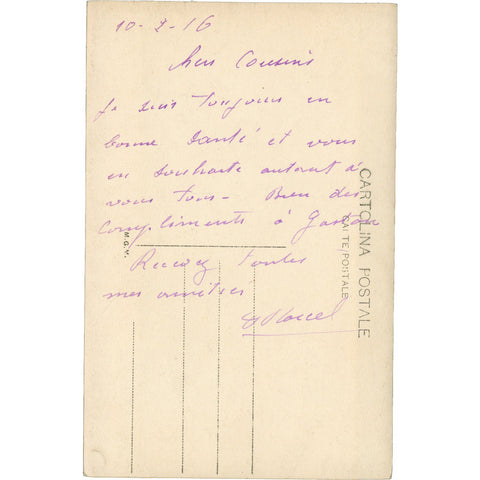 10-2-16
Chers Cousins
Je suis toujours en
bonne santé et vous
en souhaite autant à
vous tous - Bien des
compliments à Gaston
Recevez toutes
mes amitiés
Marcel
CARTOLINA POSTALE
CARTE POSTALE
M.G.V.